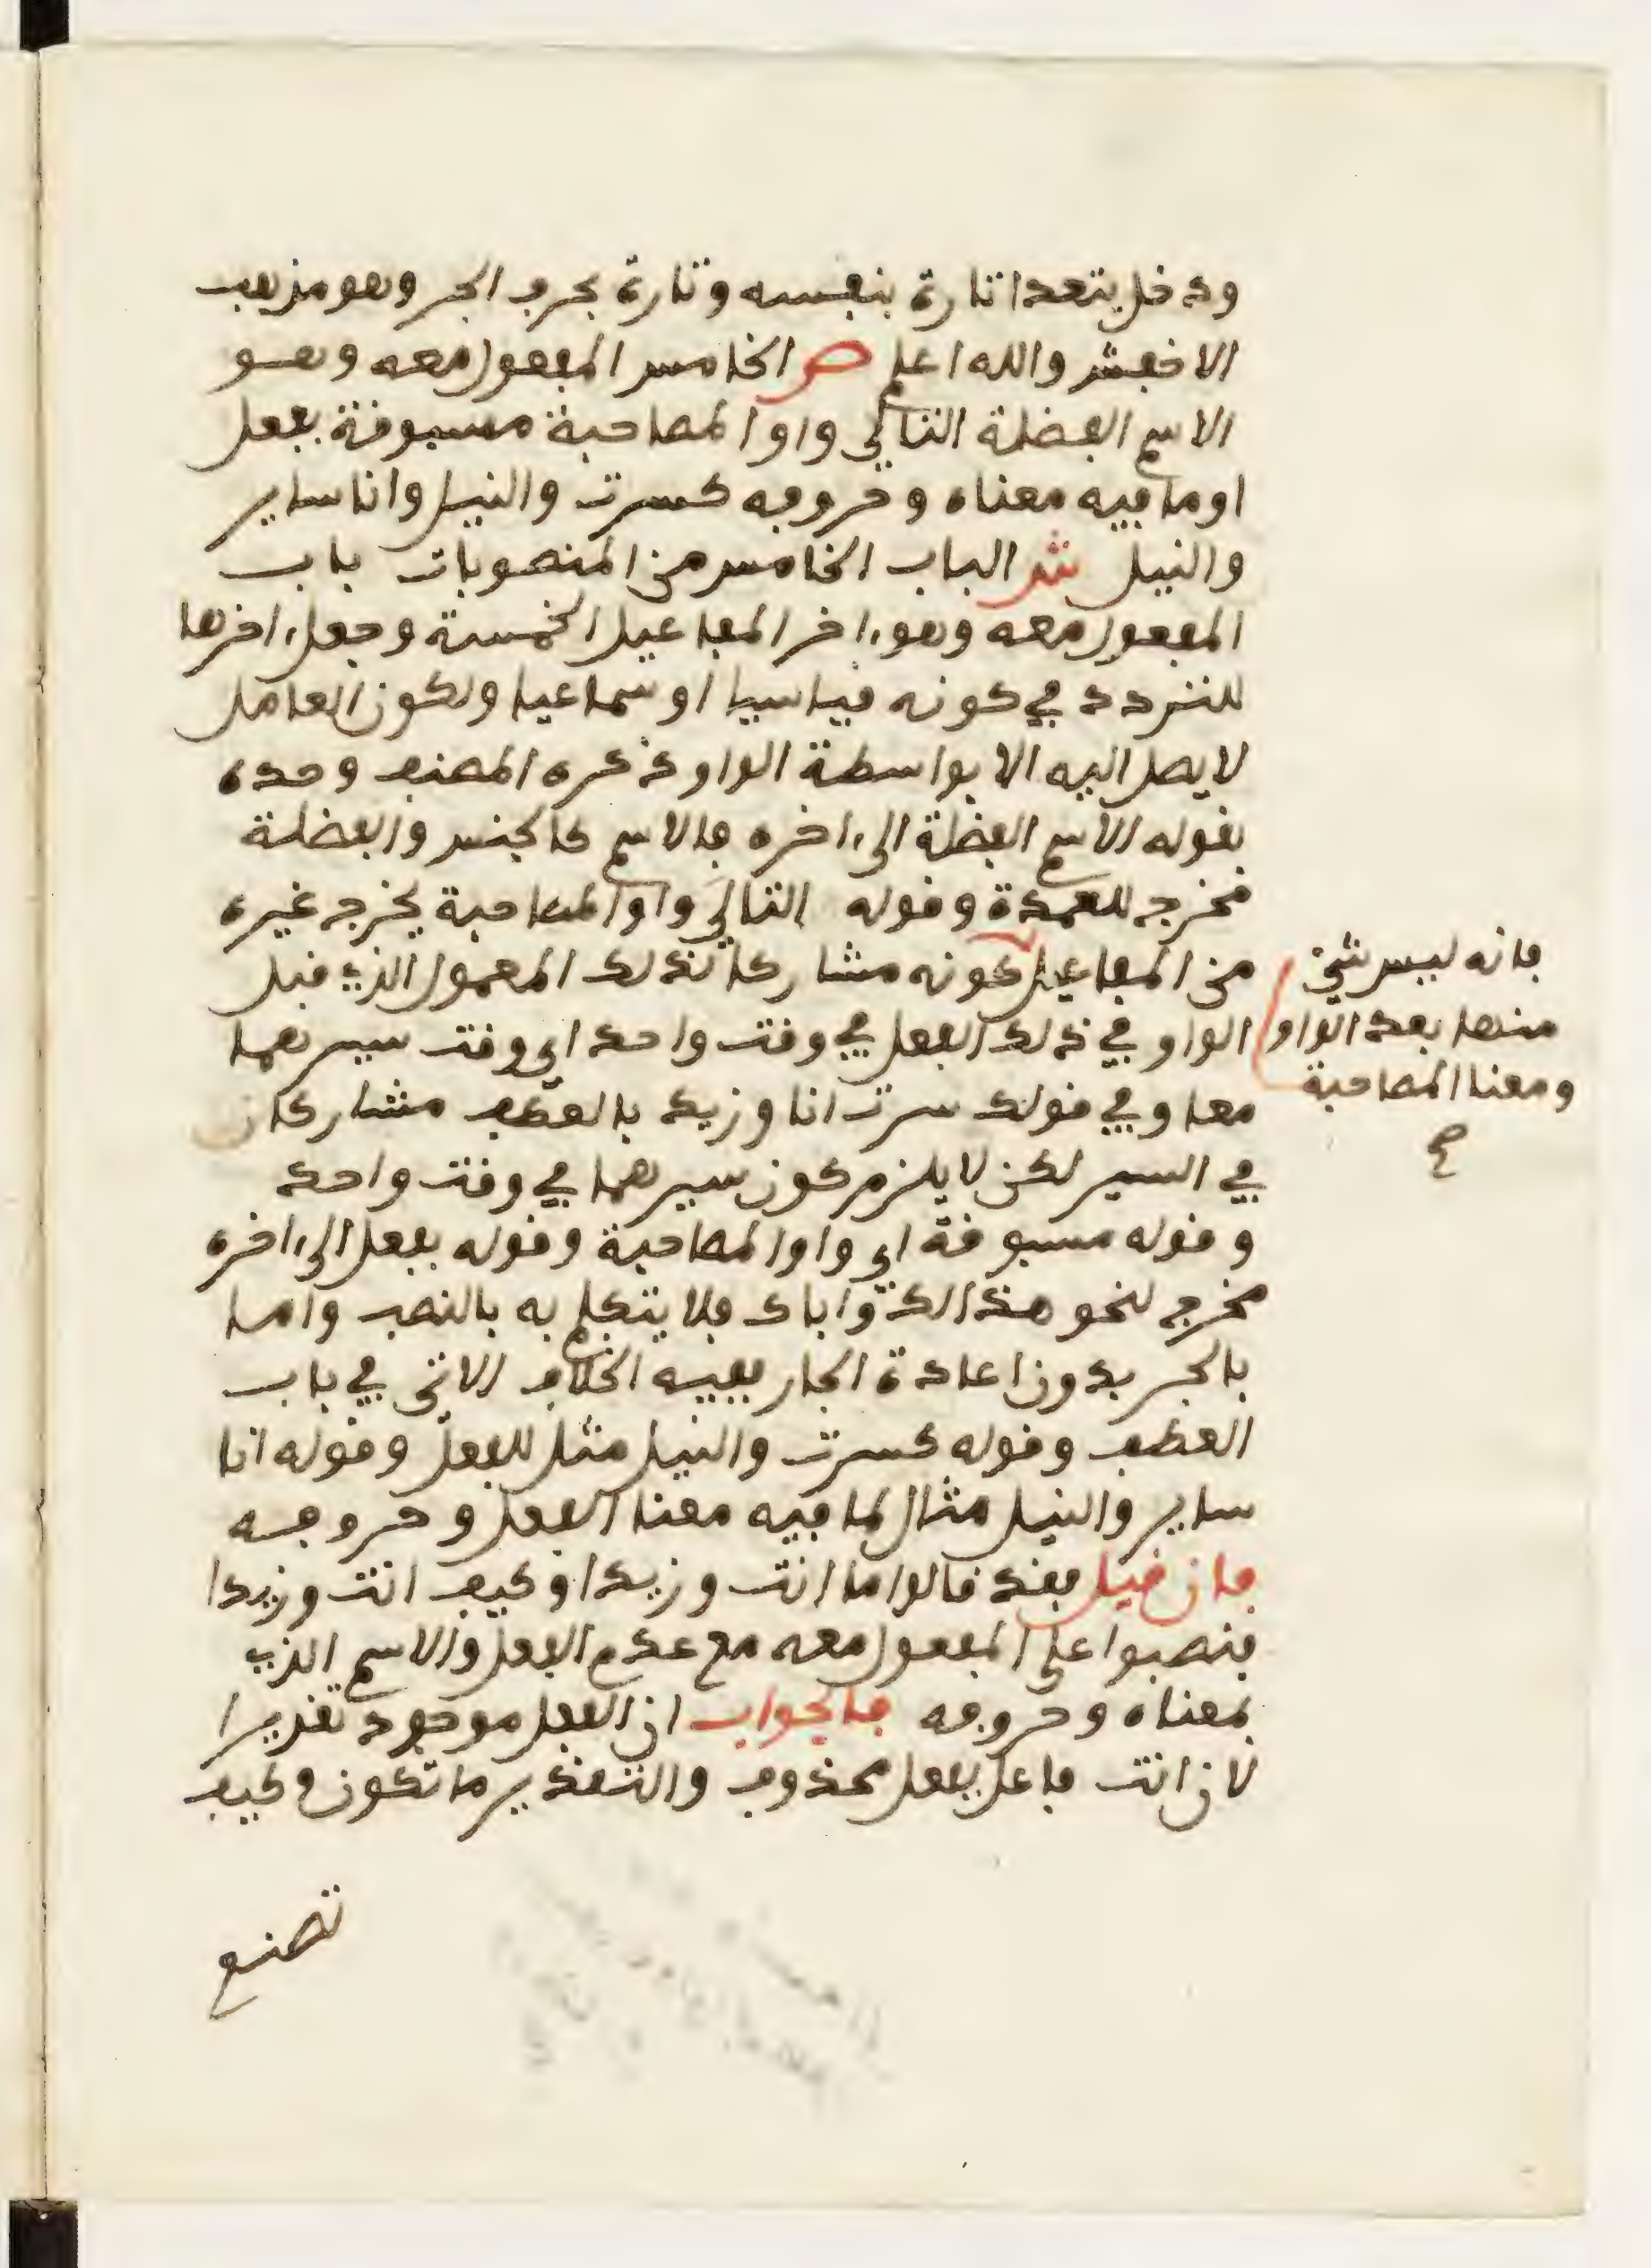 ودخل يتعدا تارة بنفسه وتارة بحرف الجر وهو مذهب
الاخفش والله اعلم ص الخامس المفعول معه وهو
الاسم الفضلة التالي واو المصاحبة مسبوقة بفعل
او ما فيه معناه وحروفه كسرت والنيل وانا ساير
والنيل ش الباب الخامس من المنصوبات باب
المفعول معه وهو ءاخر المفاعيل الخمسة وجعل ءاخرها
للتردد في كونه قياسيا او سماعيا ولكون العامل
لا يصل اليه الا بواسطة الواو ذكره المصنف وحده
بقوله الاسم الفضلة الى ءاخره فالاسم كالجنس والفضلة
مخرج للعمدة وقوله التالي واو المصاحبة يخرج غيره
من المفاعيل كونه مشاركا لذلك المعمول الذي قبل
الواو في ذلك الفعل في وقت واحد اي وقت سيرهما
معا وفي قولك سرت انا وزيد بالعطف مشاركان
في السير لكن لا يلزم كون سيرهما في وقت واحد
وقوله مسبوقة اي واو المصاحبة وقوله بفعل الى ءاخره
مخرج لنحو هذا لك واباك فلا يتكلم به بالنصب واما
بالجر بدون اعادة الجار ففيه الخلاف الاتي في باب
العطف وقوله كسرت والنيل مثل للفعل وقوله انا
ساير والنيل مثال لما فيه معنا الفعل وحروفه
فان قيل فقد قالوا ما انت وزيدا وكيف انت وزيدا
فنصبوا على المفعول معه مع عدم الفعل والاسم الذي
بمعناه وحروفه فالجواب ان الفعل موجود تقديرا
لان انت فاعل بفعل محذوف والتقدير ما تكون وكيف
تصنع
فانه ليس شيئ
منها بعد الواو
ومعنا المصاحبة
صح